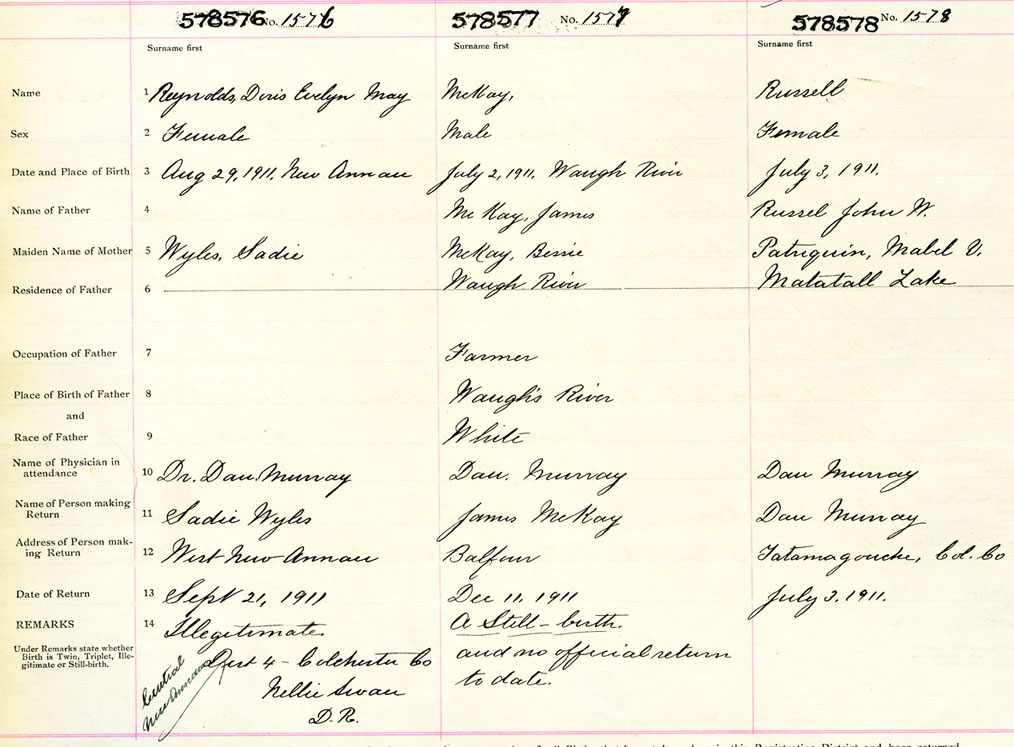 578576 No. 1576 578577 No. 1577 578578 No. 1578
Surname first Surname first Surname first
Name 1 Reynolds, Doris Evelyn May McKay, Russell
Sex 2 Female Male Female
Date and Place of Birth 3 Aug 29, 1911. New Annan July 2, 1911. Waugh River July 3, 1911.
Name of Father 4 McKay, James Russel John W.
Maiden Name of Mother 5 Wyles, Sadie McKay, Bessie Patriquin, Mabel V.
Residence of Father 6 Waugh River Matatall Lake
Occupation of Father 7 Farmer
Place of Birth of Father 8 Waugh's River
and
Race of Father 9 White
Name of Physician in
attendance 10 Dr. Dan. Murray Dan. Murray Dan Murray
Name of Person making
Return 11 Sadie Wyles James McKay Dan Murray
Address of Person mak-
ing Return 12 West New Annan Balfour Tatamagouche, Col. Co
Date of Return 13 Sept 21, 1911 Dec 11, 1911 July 3, 1911.
REMARKS 14 Illegitimate. A Still-birth.
Under Remarks state whether
Birth is Twin, Triplet, Ille-
gitimate or Still-birth.
Central
New Annan
Dist 4 - Colchester Co
Nellie Swan
D.R.
and no official return
to date.